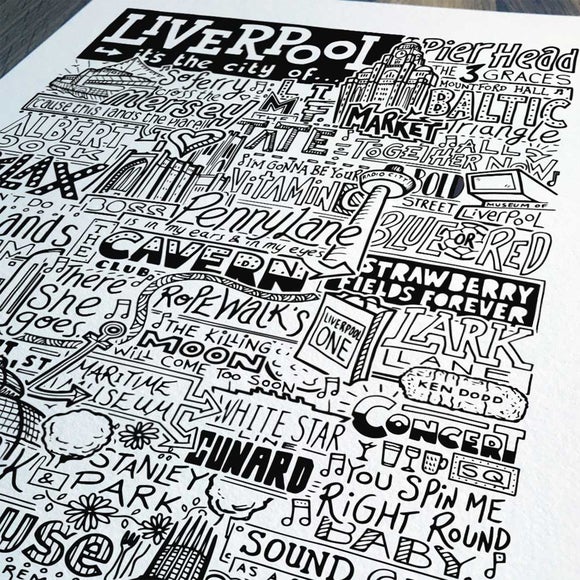 LIVERPOOL
it's the city of...
PIER HEAD
THE 3 GRACES
MOUNTFORD HALL
So ferry
cross the
Mersey
'cause this lands the place
BALTIC
Triangle
MARKET
ALBERT
DOCK
TATE
HALL
TOGETHER NOW
I'M GONNA BE YOUR
VITAMIN C
RADIO CITY
BOLD
STREET
MUSEUM OF
LIVERPOOL
Penny Lane
is in my ears & in my eyes
BLUE OR RED
THE
CAVERN
CLUB
STRAWBERRY
FIELDS FOREVER
There
She
goes
ROPEWALKS
LIVERPOOL
ONE
LARK
LANE
THE KILLING
MOON
WILL COME TOO SOON
KEN DODD
MARITIME
MUSEUM
WHITE STAR
LINE
CUNARD
CONCERT
SQ
STANLEY
PARK
YOU SPIN ME
RIGHT ROUND
BABY
SOUND
AS A